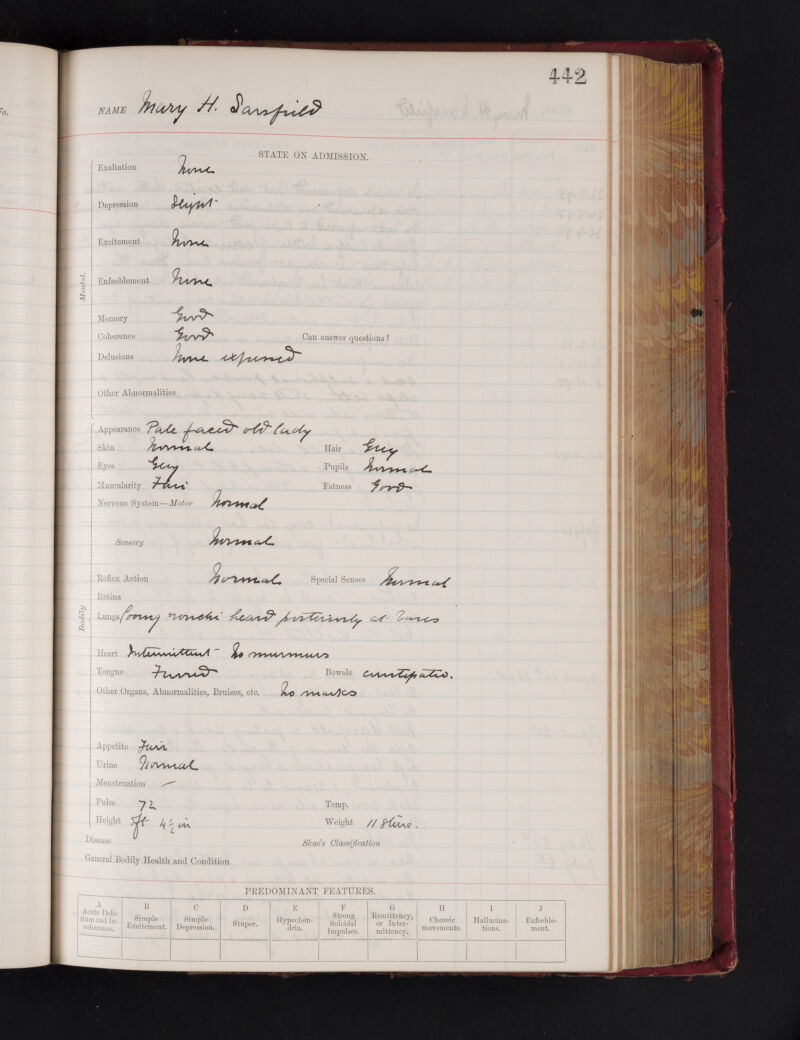 442
NAME Mary H. Sarsfield
STATE ON ADMISSION.
Mental.
Exaltation None
Depression Slight
Excitement None
Enfeeblement None
Memory Good
Coherence Good Can answer questions?
Delusions None expressed
Other Abnormalities
Bodily
Appearance Pale faced old lady
Skin Normal Hair Grey
Eyes Grey Pupils Normal
Muscularity Fair Fatness Good
Nervous System—Motor Normal
Sensory Normal
Reflex Action Normal Special Senses Normal
Retina
Lungs ronchi heard posteriorly at bases
Heart Intermittent no murmurs
Tongue Furred Bowels constipatio.
Other Organs, Abnormalities, Bruises, etc. No marks
Appetite Fair
Urine Normal
Menstruation —
Pulse 72 Temp.
Height 5ft 4½ in Weight 11 Stone.
Disease Skae's Classification
General Bodily Health and Condition
PREDOMINANT FEATURES.
A B C D E F G H I J
Acute Delirium and Incoherence. Simple Excitement. Simple Depression. Stupor. Hypochondria. Strong Suicidal Impulses. Remittency, or Intermittency. Choreic movements. Hallucinations. Enfeeblement.